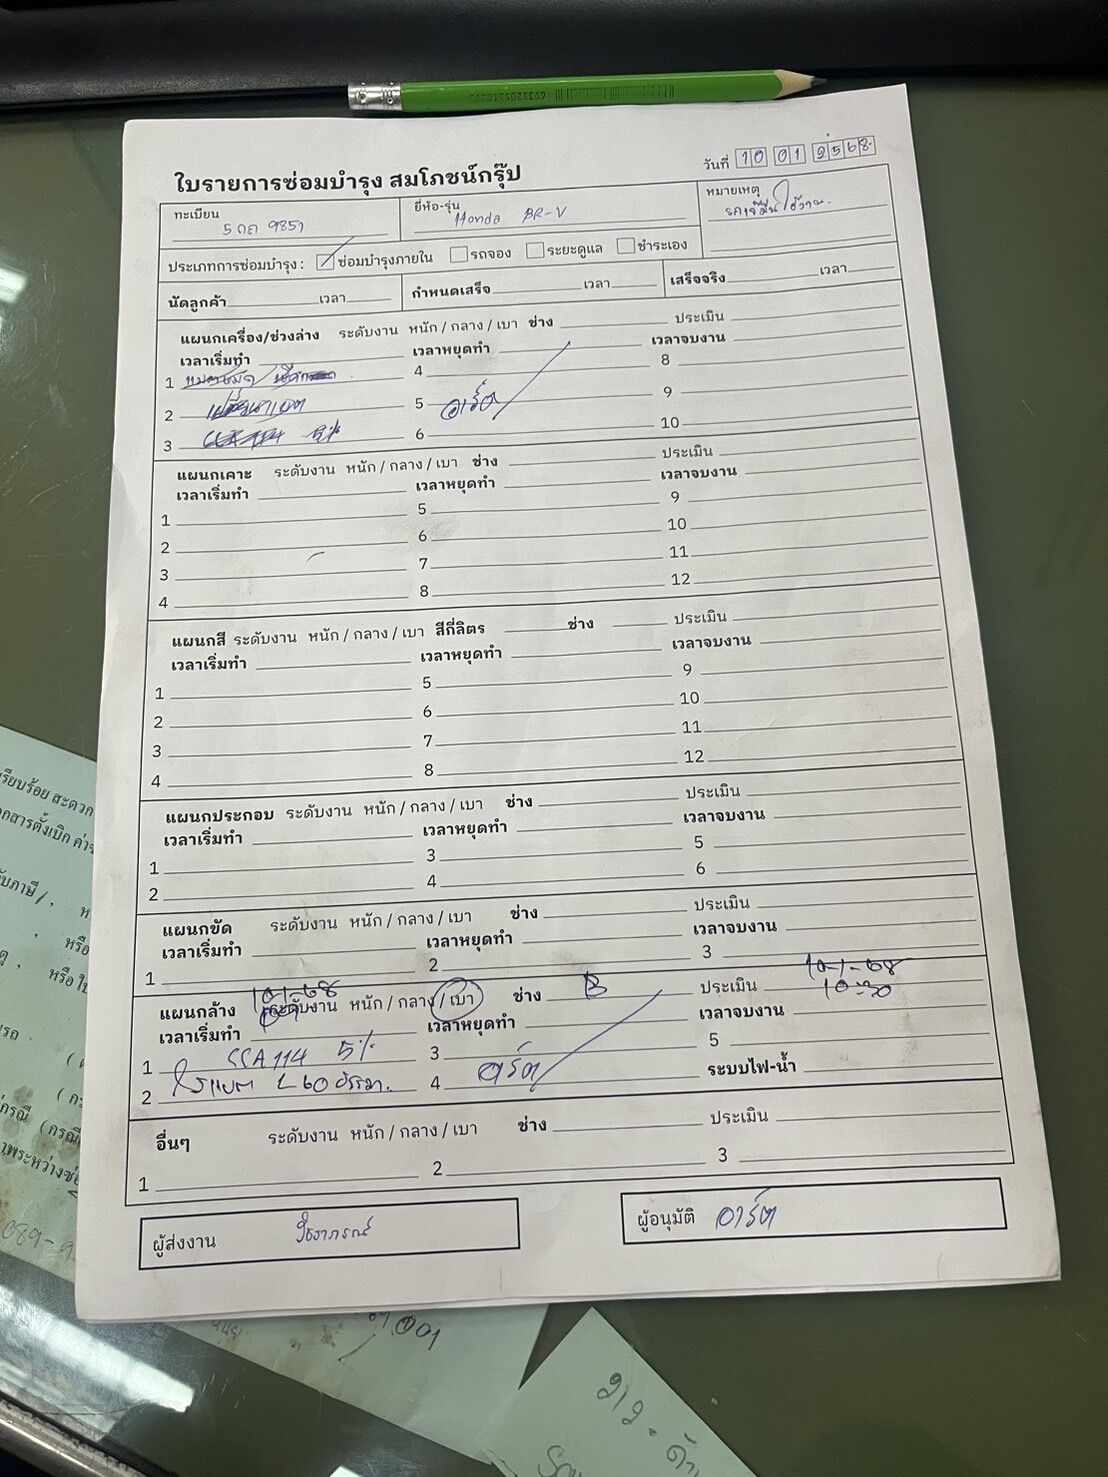 6933205510295
ใบรายการซ่อมบำรุง สมโภชน์กรุ๊ป
วันที่ 10 01 2568
ทะเบียน 5กถ 9851
ยี่ห้อ-รุ่น Honda BR-V
หมายเหตุ
ประเภทการซ่อมบำรุง : ซ่อมบำรุงภายใน รถจอง ระยะดูแล ชำระเอง
นัดลูกค้า เวลา กำหนดเสร็จ เวลา เสร็จจริง เวลา
แผนกเครื่อง/ช่วงล่าง ระดับงาน หนัก / กลาง / เบา ช่าง ประเมิน
เวลาเริ่มทำ เวลาหยุดทำ เวลาจบงาน
1 4 8
2 5 อาร์ต 9
3 6 10
แผนกเคาะ ระดับงาน หนัก / กลาง / เบา ช่าง ประเมิน
เวลาเริ่มทำ เวลาหยุดทำ เวลาจบงาน
1 5 9
2 6 10
3 7 11
4 8 12
แผนกสี ระดับงาน หนัก / กลาง / เบา สีกี่ลิตร ช่าง ประเมิน
เวลาเริ่มทำ เวลาหยุดทำ เวลาจบงาน
1 5 9
2 6 10
3 7 11
4 8 12
แผนกประกอบ ระดับงาน หนัก / กลาง / เบา ช่าง ประเมิน
เวลาเริ่มทำ เวลาหยุดทำ เวลาจบงาน
1 3 5
2 4 6
แผนกขัด ระดับงาน หนัก / กลาง / เบา ช่าง ประเมิน
เวลาเริ่มทำ เวลาหยุดทำ เวลาจบงาน
1 2 3
10-1-68 10-1-68
แผนกล้าง ระดับงาน หนัก / กลาง / เบา ช่าง B ประเมิน 10:30
เวลาเริ่มทำ เวลาหยุดทำ เวลาจบงาน
1 CCA 114 5% 3 5
2 L 60 4 อาร์ต ระบบไฟ-น้ำ
อื่นๆ ระดับงาน หนัก / กลาง / เบา ช่าง ประเมิน
1 2 3
ผู้ส่งงาน
ผู้อนุมัติ อาร์ต
รียบร้อย สะดวก